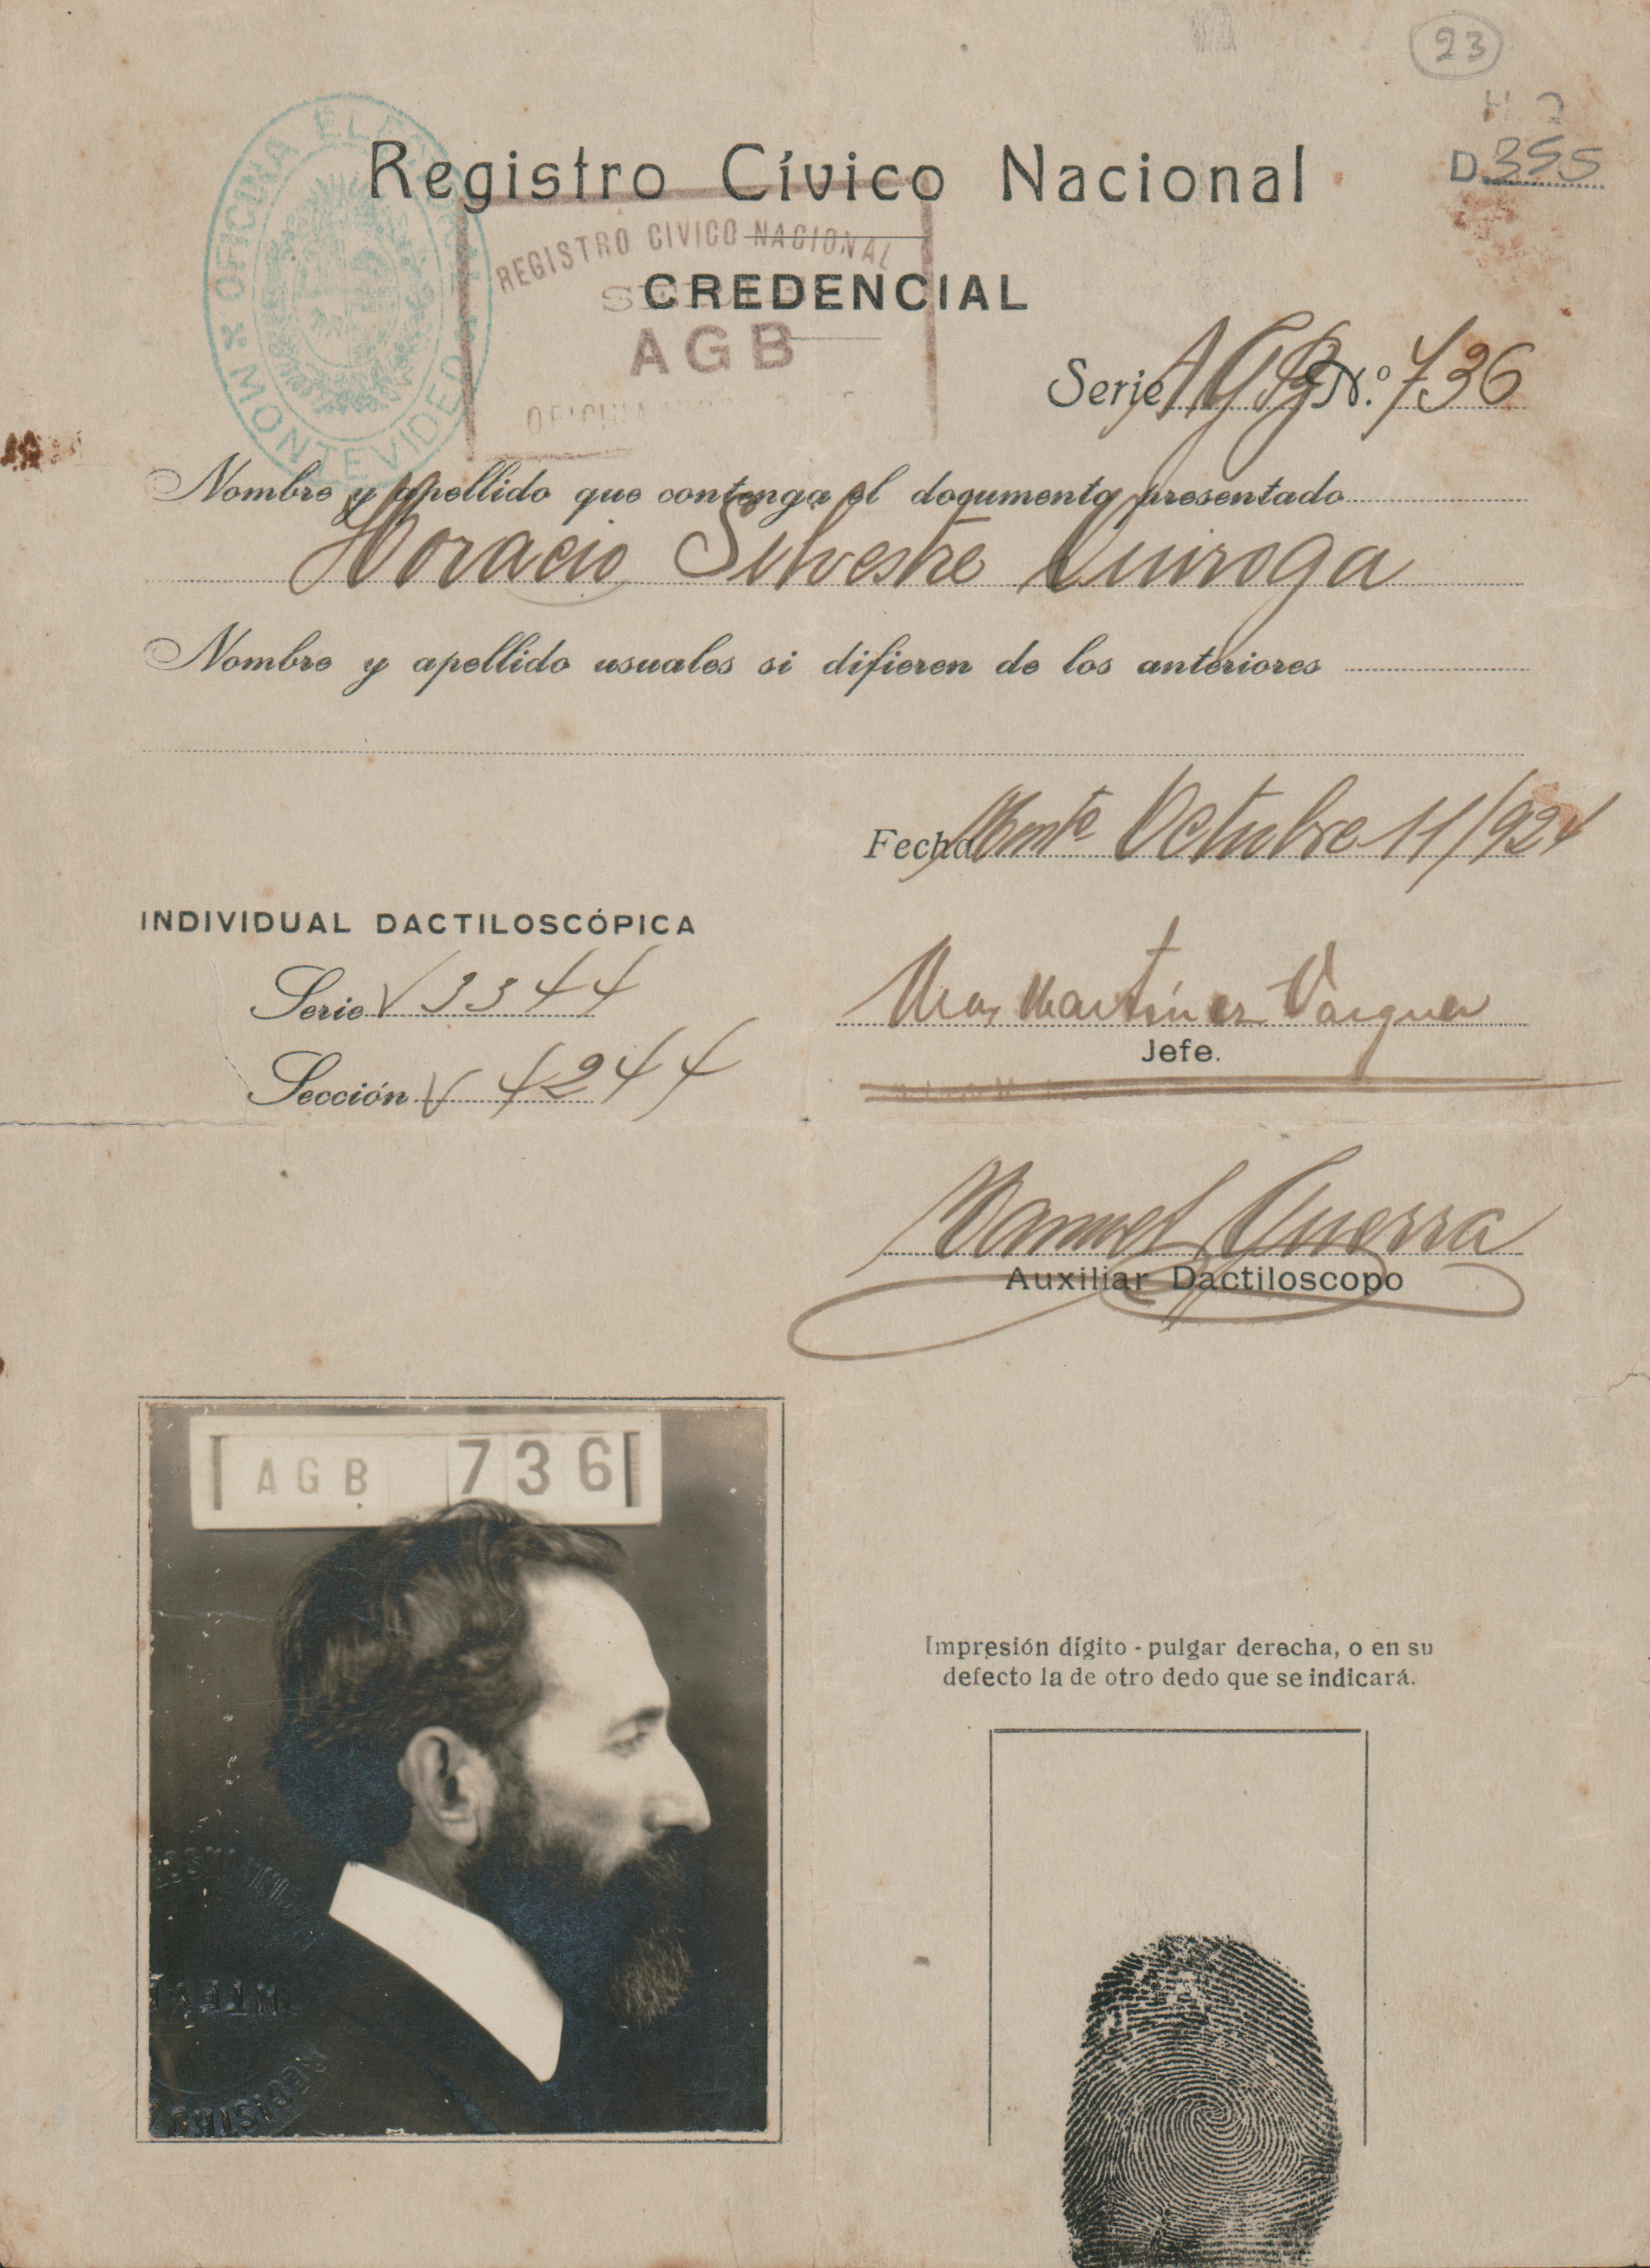 23
H Q
D 355
OFICINA ELECTORAL
MONTEVIDEO
Registro Cívico Nacional
REGISTRO CIVICO NACIONAL
CREDENCIAL
AGB
OFICINA
Serie AGB N.º 736
Nombre y apellido que contenga el documento presentado
Horacio Silvestre Quiroga
Nombre y apellido usuales si difieren de los anteriores
Fecha Montº Octubre 11/924
INDIVIDUAL DACTILOSCÓPICA
Serie V 3344
Sección V 4244
Martínez
Jefe.
Manuel Guerra
Auxiliar Dactiloscopo
[ AGB 736 ]
Impresión dígito - pulgar derecha, o en su
defecto la de otro dedo que se indicará.
REGISTRO